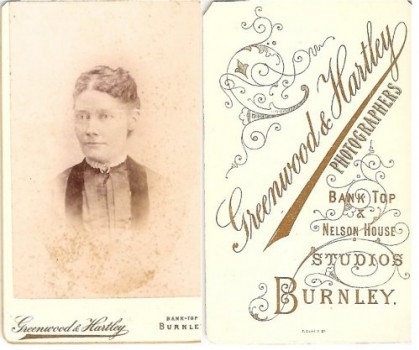 Greenwood & Hartley
BANK-TOP
BURNLE
Greenwood & Hartley
PHOTOGRAPHERS
BANK TOP
&
NELSON HOUSE
STUDIOS
BURNLEY.